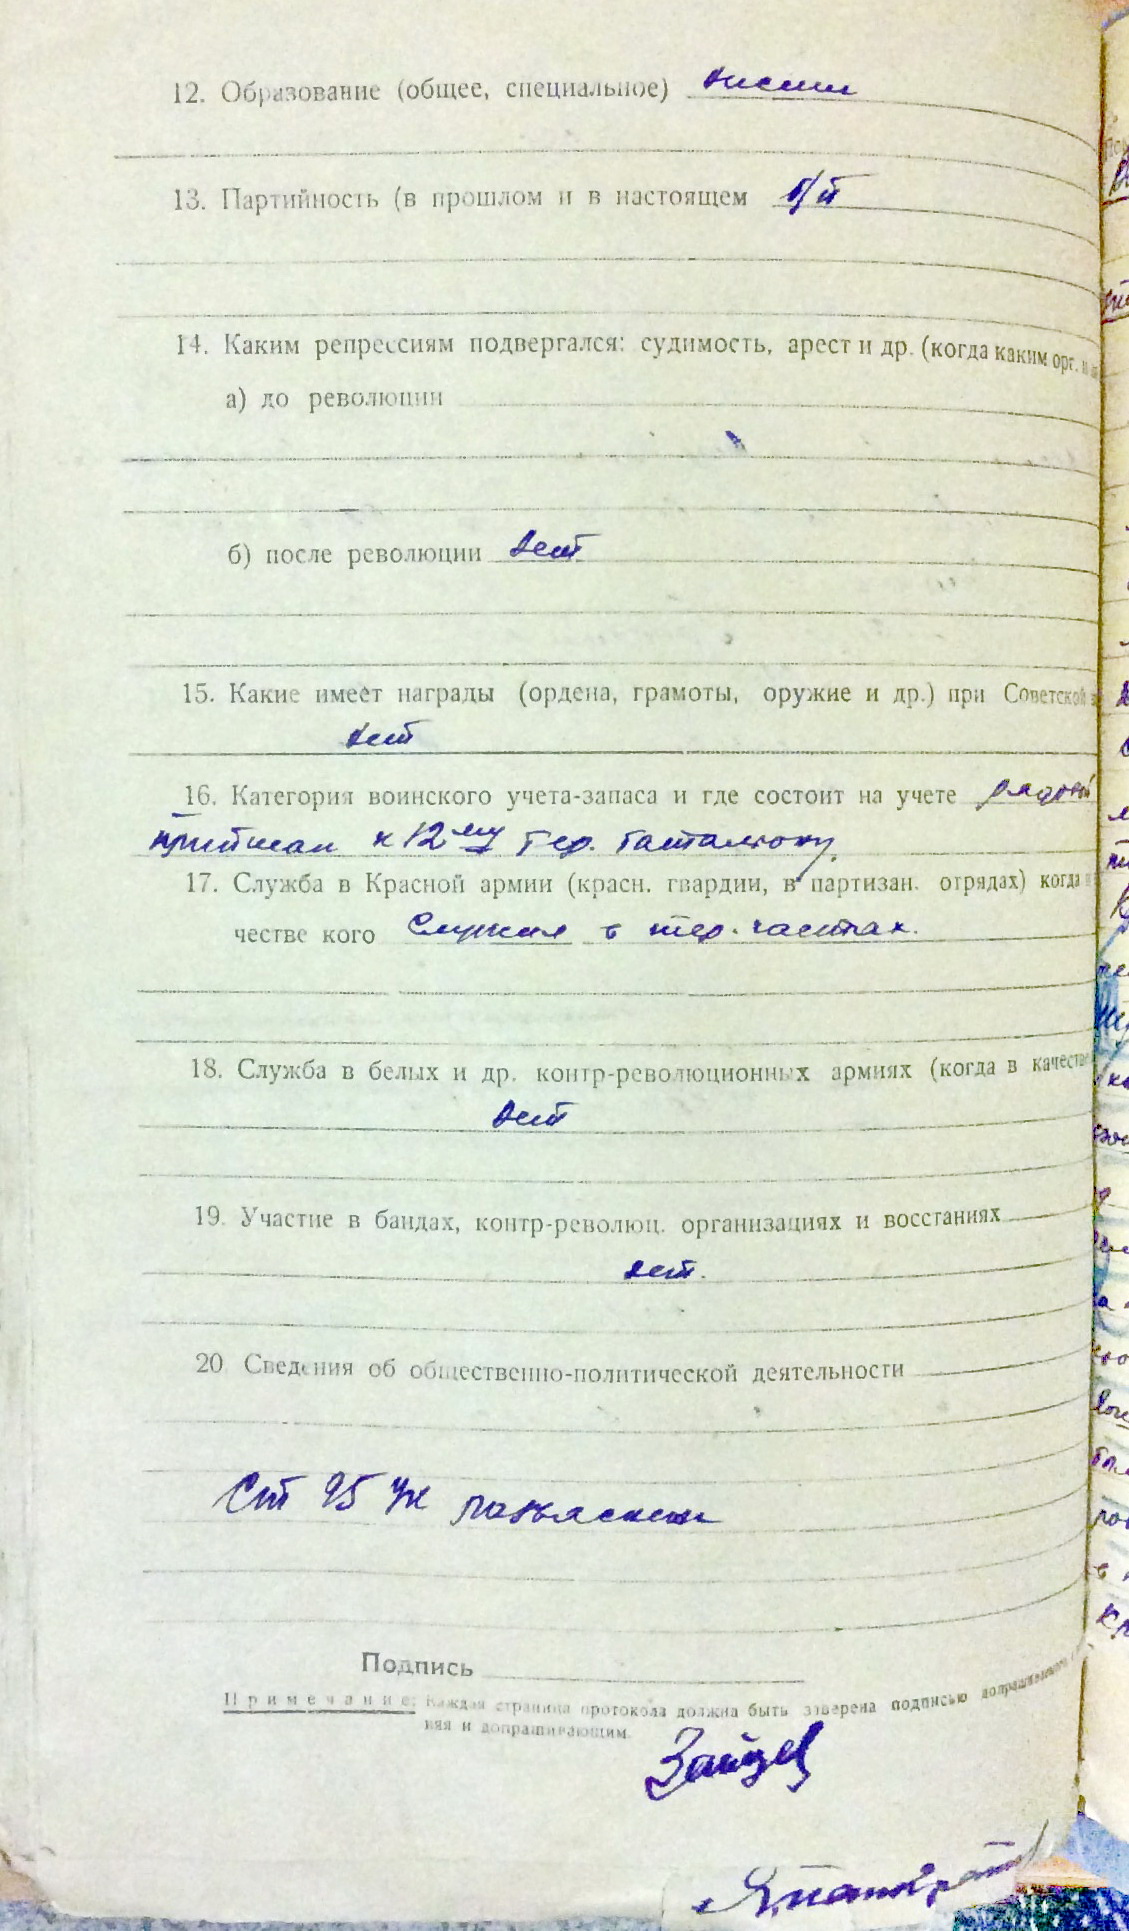 12. Образование (общее, специальное) низшее
13. Партийность (в прошлом и в настоящем б/п
14. Каким репрессиям подвергался: судимость, арест и др. (когда каким орг.
а) до революции
б) после революции нет
15. Какие имеет награды (ордена, грамоты, оружие и др.) при Советской
нет
16. Категория воинского учета-запаса и где состоит на учете рядовой
приписан к 12му тер. батальону.
17. Служба в Красной армии (красн. гвардии, в партизан. отрядах) когда
честве кого Служил в тер. частях.
18. Служба в белых и др. контр-революционных армиях (когда в качестве
нет
19. Участие в бандах, контр-революц. организациях и восстаниях
нет.
20 Сведения об общественно-политической деятельности
Ст 95 УК
Подпись
Примечание: Каждая страница протокола должна быть заверена подписью допрашиваемого
допрашивающим.
Зайцев